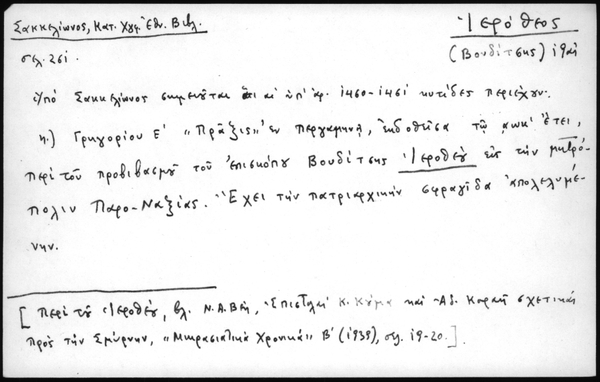 Σακκελίωνος, Κατ. Χγφ. Ἐθν. Βιβλ.
Ἱερόθεος
σελ. 261.
(Βουδίτσης) 19αι
Ὑπό Σακκελίωνος σημειοῦται ὅτι αἱ ὑπ' ἀρ. 1460-1461 κυτίδες περιέχουν:
η.) Γρηγορίου Ε' "Πρᾶξις" ἐν περγαμηνῇ, ἐκδοθεῖσα τῷ αωκ' ἔτει,
περί τοῦ προβιβασμοῦ τοῦ Ἐπισκόπου Βουδίτσης Ἱεροθέου εἰς τήν μητρό-
πολιν Παρο-Ναξίας. Ἔχει τήν πατριαρχικήν σφραγῖδα ἀπολελυμέ-
νην.
[Περί τοῦ Ἱεροθέου, βλ. Ν.Α.Βέη, Ἐπιστολαί Κ. Κύμα καί Ἀδ. Κοραῆ σχετικαί
πρός τήν Σμύρνην, "Μικρασιατικά Χρονικά" Β' (1939), σελ. 19-20.].